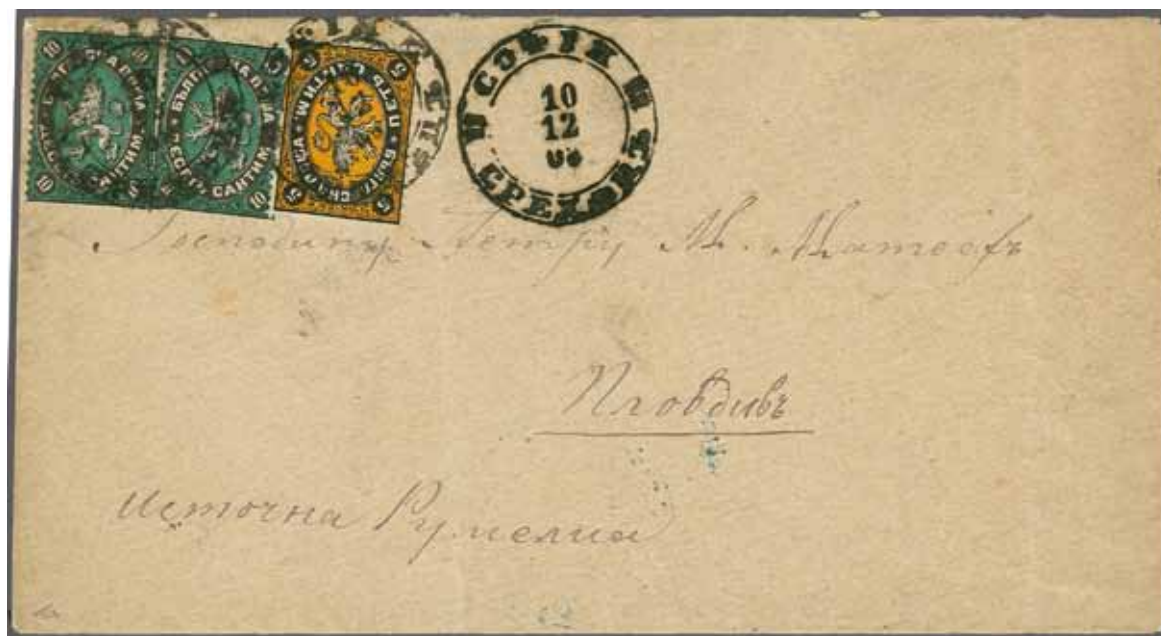 10 10
БЪЛГАРСКА ПОЩА
ДЕСЕТЬ САНТИМ.
10 10
БЪЛГАРСКА ПОЩА
ДЕСЕТЬ САНТИМ.
10
5 5
БЪЛГАРСКА
ПЕТЬ САНТИМ.
5 5
СОФІЯ
10
12
СРЕДЕЦЪ
Господину Петру М. Матеевъ
Пловдивъ
Источна Румелия